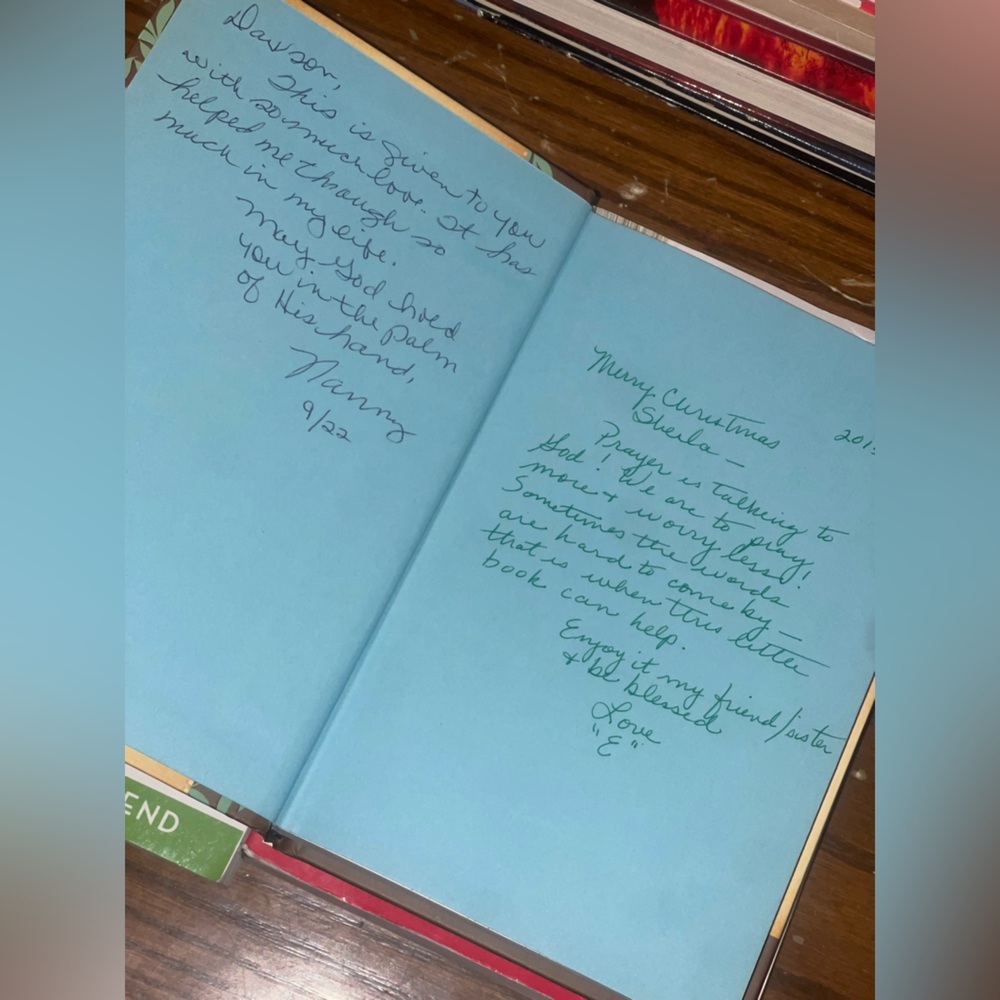 Dawson,
This is given to you
with so much love. It has
helped me through so
much in my life.
May God hold
you in the palm
of His hand,
Nanny
9/22
Merry Christmas
Sheila —
Prayer is talking to
God! We are to pray
more + worry less!
Sometimes the words
are hard to come by —
that is when this little
book can help.
Enjoy it my friend/sister
+ be blessed
Love
"E"
END